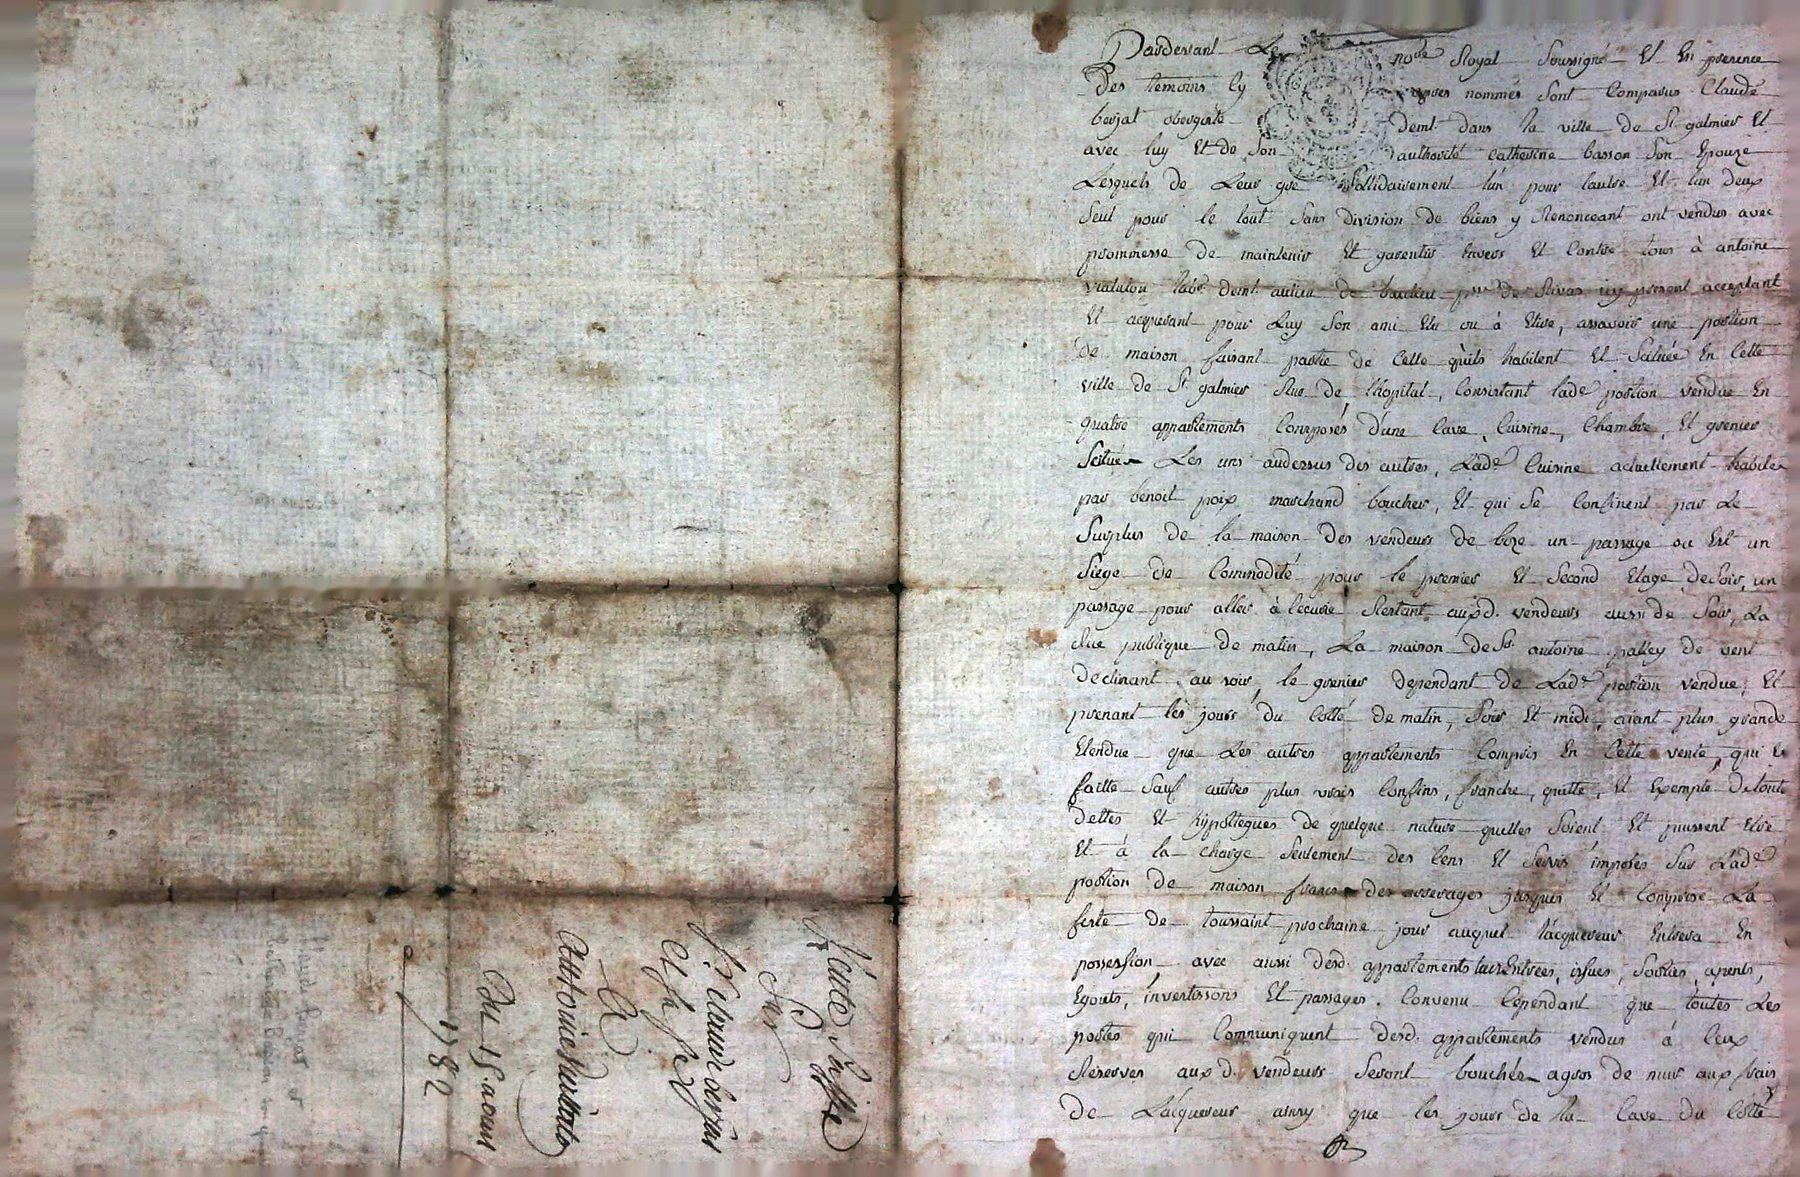 Pardevant Le nore Royal Soussigné Et En presence
Des temoins Cy apres nommés Sont Comparus Claude
berjat obergiste demt. dans la ville de St. galmier Et
avec luy Et de Son authorité Catherine basson Son Epouze
Lesquels de Leur gré Sollidairement l'un pour l'autre Et l'un deux
Seul pour le tout Sans division de biens y Renonceant ont vendus avec
prommesse de maintenir Et garentir Envers Et Contre tous à antoine
labr. demt. aulieu de psse de Rivas icy present acceptant
Et acquerant pour Luy Son ami Elu ou à Elire, assavoir une portion
de maison faisant partie de Celle qu'ils habitent Et Scituée En Cette
ville de St. galmier Rue de l'hopital, Consistant lade portion vendue En
quatre appartements Composés d'une Cave, Cuisine, Chambre, Et grenier
Scitués Les uns audessus des autres, Lade Cuisine actuellement habitée
par benoit poix marchand boucher, Et qui Se Confinent par Le
Surplus de la maison des vendeurs de bize un passage ou Est un
Siege de Commodité pour le premier Et Second Etage, de Soir, un
passage pour aller à l'ecurie Restant auxd. vendeurs aussi de Soir, La
Rue publique de matin, La maison de Sr. antoine palley de vent
declinant au soir, le grenier dependant de Lade portion vendue, Et
prenant les jours du Cotté de matin, Soir Et midi, aiant plus grande
Etendue que Les autres appartements Compris En Cette vente, qui Es
faitte Sauf autres plus vrais Confins, franche, quitte, Et Exempte De toute
dettes Et hypotteques de quelque nature quelles Soient Et puissent Etre
Et à la charge Seulement des Cens Et Servis imposés Sur Lade
portion de maison francs des arrerages jusques Et Comprise La
feste de toussaint prochaine jour auquel l'acquereur Entrera En
possession avec aussi desd. appartements leurs Entrées, issues, Sorties, apents,
Egouts, investissons Et passages. Convenu Cependant que toutes Les
portes qui Communiquent desd. appartements vendus à Ceux
Réservés aux d. vendeurs Seront bouchés agros de mur aux frais
de L'acquereur ainsy que les jours de la Cave du Cotté
Vente Passée
Par
Sr Claude berjat
et sa fe
A
Antoine
Du 15 aoust
1782